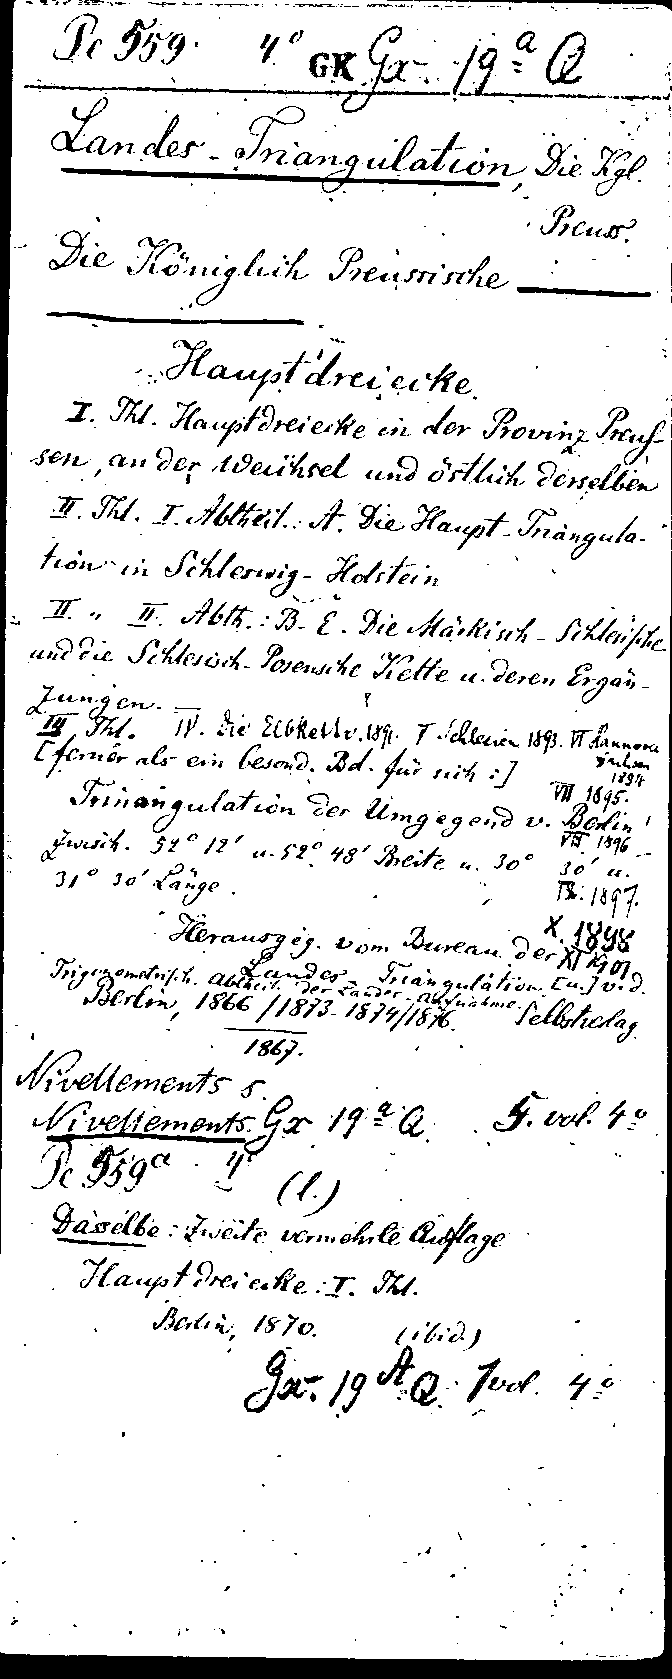 Pc 559. 4° GK Gx. 19ª Q
Landes-Triangulation, Die Kgl.
Preuss.
Die Königlich Preussische ———
———
Hauptdreiecke.
I. Thl. Hauptdreiecke in der Provinz Preus-
sen, an der Weichsel und östlich derselben
II. Thl. I. Abtheil.: A. Die Haupt-Triangula-
tion in Schleswig-Holstein
II. „ II. Abth.: B-E. Die Märkisch-Schlesische
und die Schlesisch-Posensche Kette u. deren Ergän-
zungen.
III Thl. IV. Die Elbkette v. 1891. V Schlesien 1893. VI Hannover
Sachsen
1894
[ferner als ein besond. Bd. für sich:]
VII 1895.
Trinangulation der Umgegend v. Berlin
VIII. 1896
zwisch. 52° 12' u. 52° 48' Breite u. 30° 30' u.
31° 30' Länge.
IX. 1897.
X. 1898
Herausgeg. vom Bureau der
XI 1901
Landes-Triangulation. [u.] v. d.
Trigonometrisch. Abtheil. der Landes-Aufnahme.
Berlin, 1866/1873-1874/1876. Selbstverlag.
1867.
Nivellements s.
Nivellements. Gx 19ª Q. 5. vol. 4°
Pc 559ª 4°
(l.)
Dasselbe: Zweite vermehrte Auflage
Hauptdreiecke: I. Thl.
Berlin, 1870. (ibid.)
Gx. 19 A Q. 1 vol. 4°